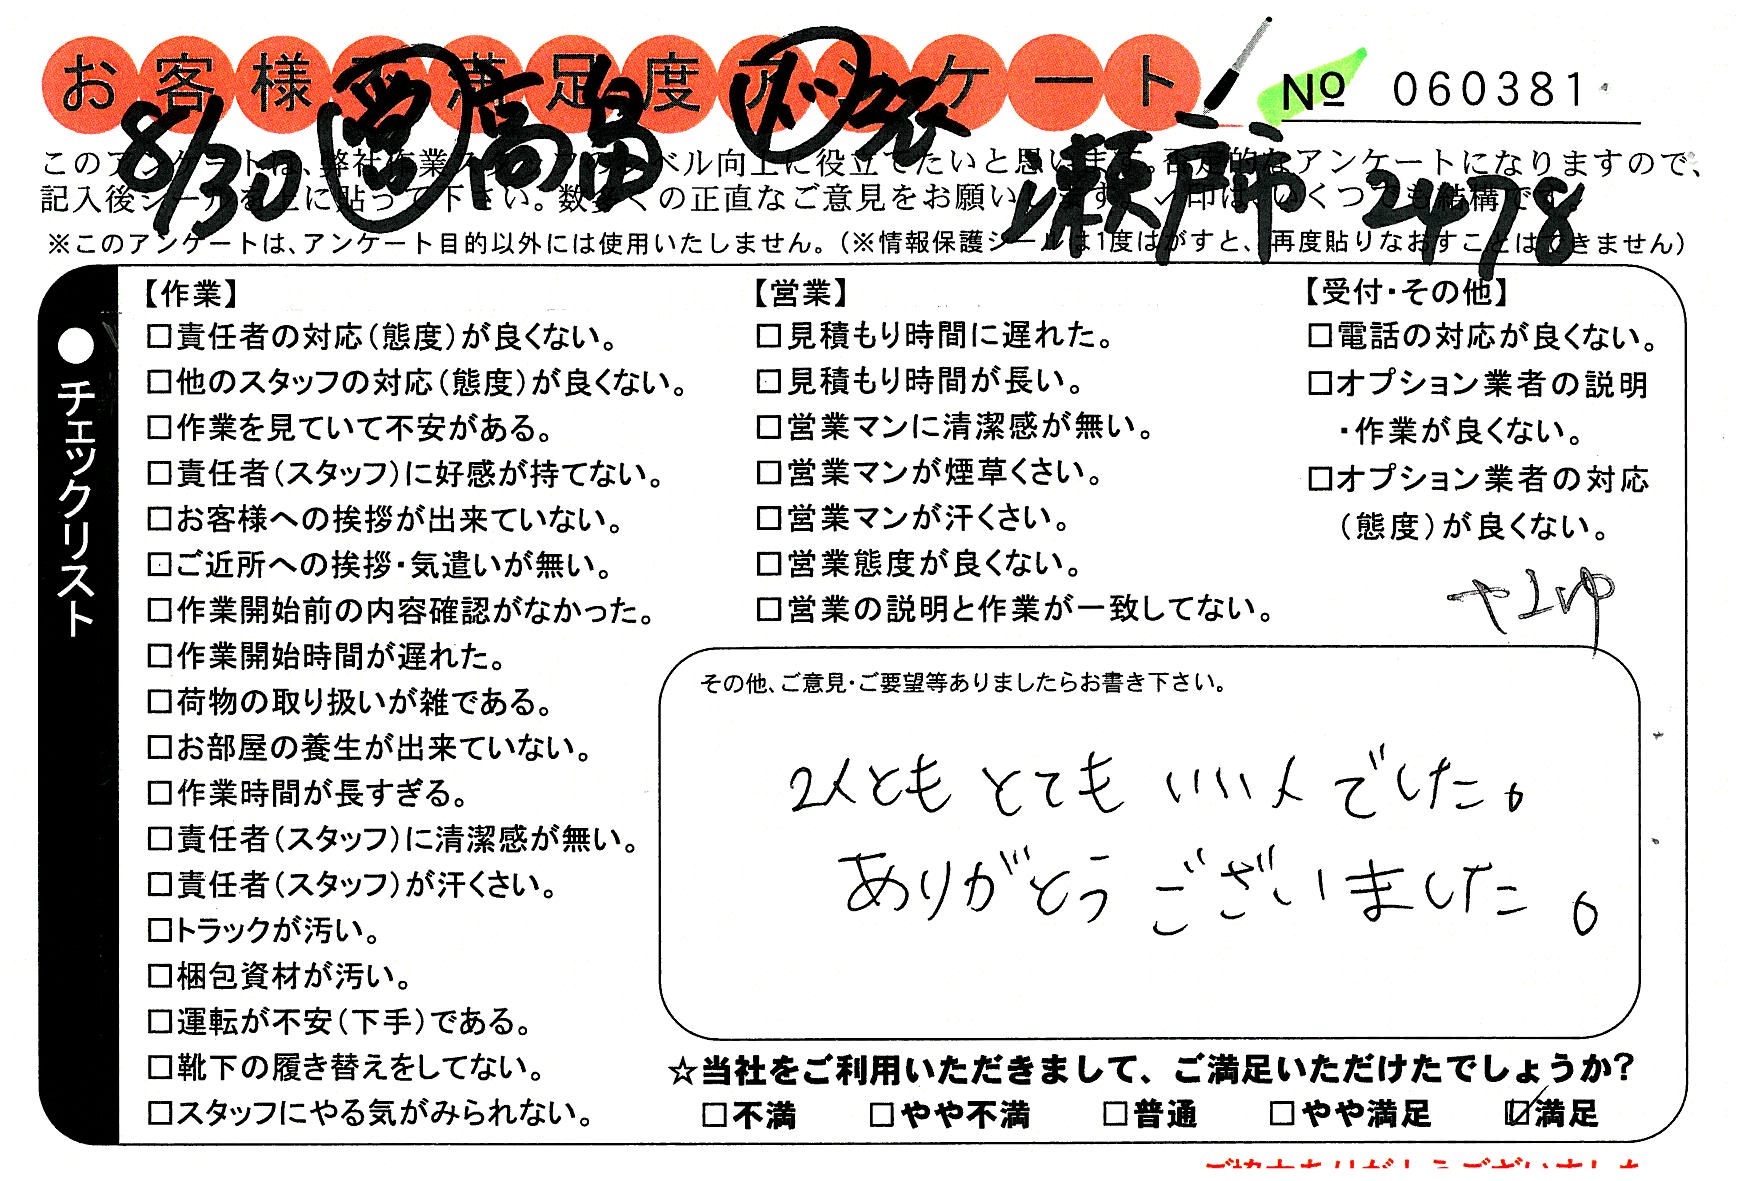 お客様不満足度アンケート
№ 060381
8/30 営 高畠 ド
瀬戸市 2478
このアンケートは、弊社作業スタッフのレベル向上に役立てたいと思います。否定的なアンケートになりますので、
記入後シールを上に貼って下さい。数多くの正直なご意見をお願いします。✓印は、いくつでも結構です。
※このアンケートは、アンケート目的以外には使用いたしません。(※情報保護シールは1度はがすと、再度貼りなおすことはできません)
●チェックリスト
【作業】
□責任者の対応(態度)が良くない。
□他のスタッフの対応(態度)が良くない。
□作業を見ていて不安がある。
□責任者(スタッフ)に好感が持てない。
□お客様への挨拶が出来ていない。
□ご近所への挨拶・気遣いが無い。
□作業開始前の内容確認がなかった。
□作業開始時間が遅れた。
□荷物の取り扱いが雑である。
□お部屋の養生が出来ていない。
□作業時間が長すぎる。
□責任者(スタッフ)に清潔感が無い。
□責任者(スタッフ)が汗くさい。
□トラックが汚い。
□梱包資材が汚い。
□運転が不安(下手)である。
□靴下の履き替えをしてない。
□スタッフにやる気がみられない。
【営業】
□見積もり時間に遅れた。
□見積もり時間が長い。
□営業マンに清潔感が無い。
□営業マンが煙草くさい。
□営業マンが汗くさい。
□営業態度が良くない。
□営業の説明と作業が一致してない。
【受付・その他】
□電話の対応が良くない。
□オプション業者の説明
・作業が良くない。
□オプション業者の対応
(態度)が良くない。
その他、ご意見・ご要望等ありましたらお書き下さい。
2人とも とても いい人 でした。
ありがとう ございました。
☆当社をご利用いただきまして、ご満足いただけたでしょうか?
□不満 □やや不満 □普通 □やや満足 ☑満足
ご協力ありがとうございました